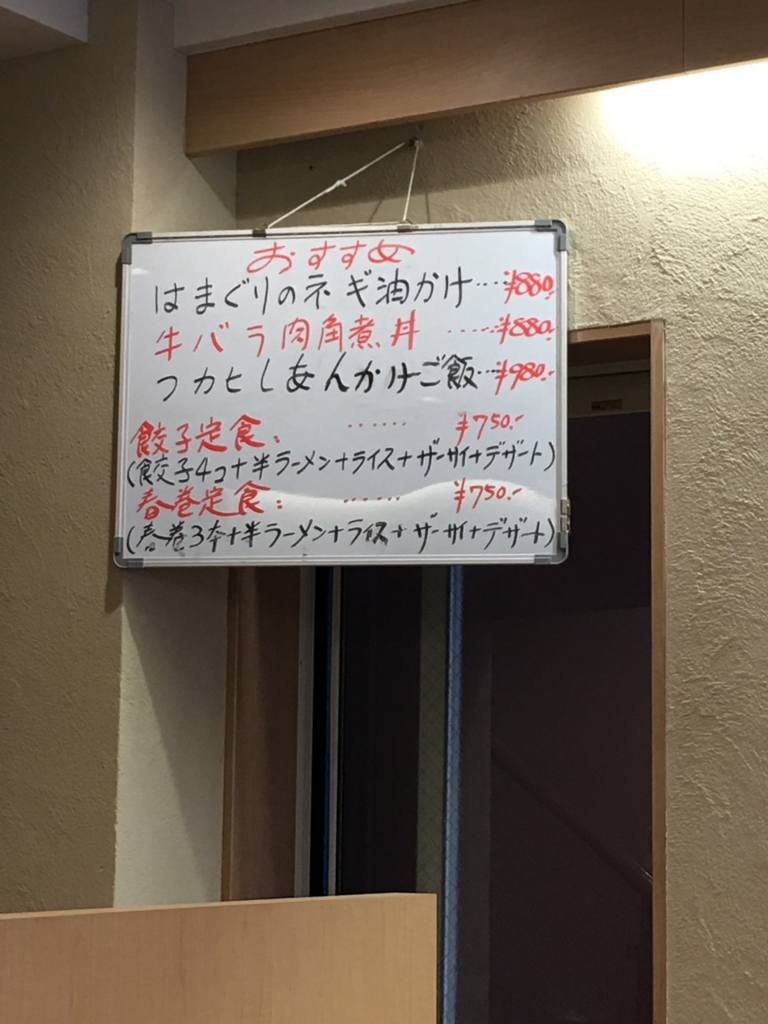 おすすめ
はまぐりのネギ油かけ…¥880.-
牛バラ肉角煮丼……¥880.-
フカヒレあんかけご飯…¥980.-
餃子定食:……¥750.-
(餃子4コ+半ラーメン+ライス+ザーサイ+デザート)
春巻定食:……¥750.-
(春巻3本+半ラーメン+ライス+ザーサイ+デザート)